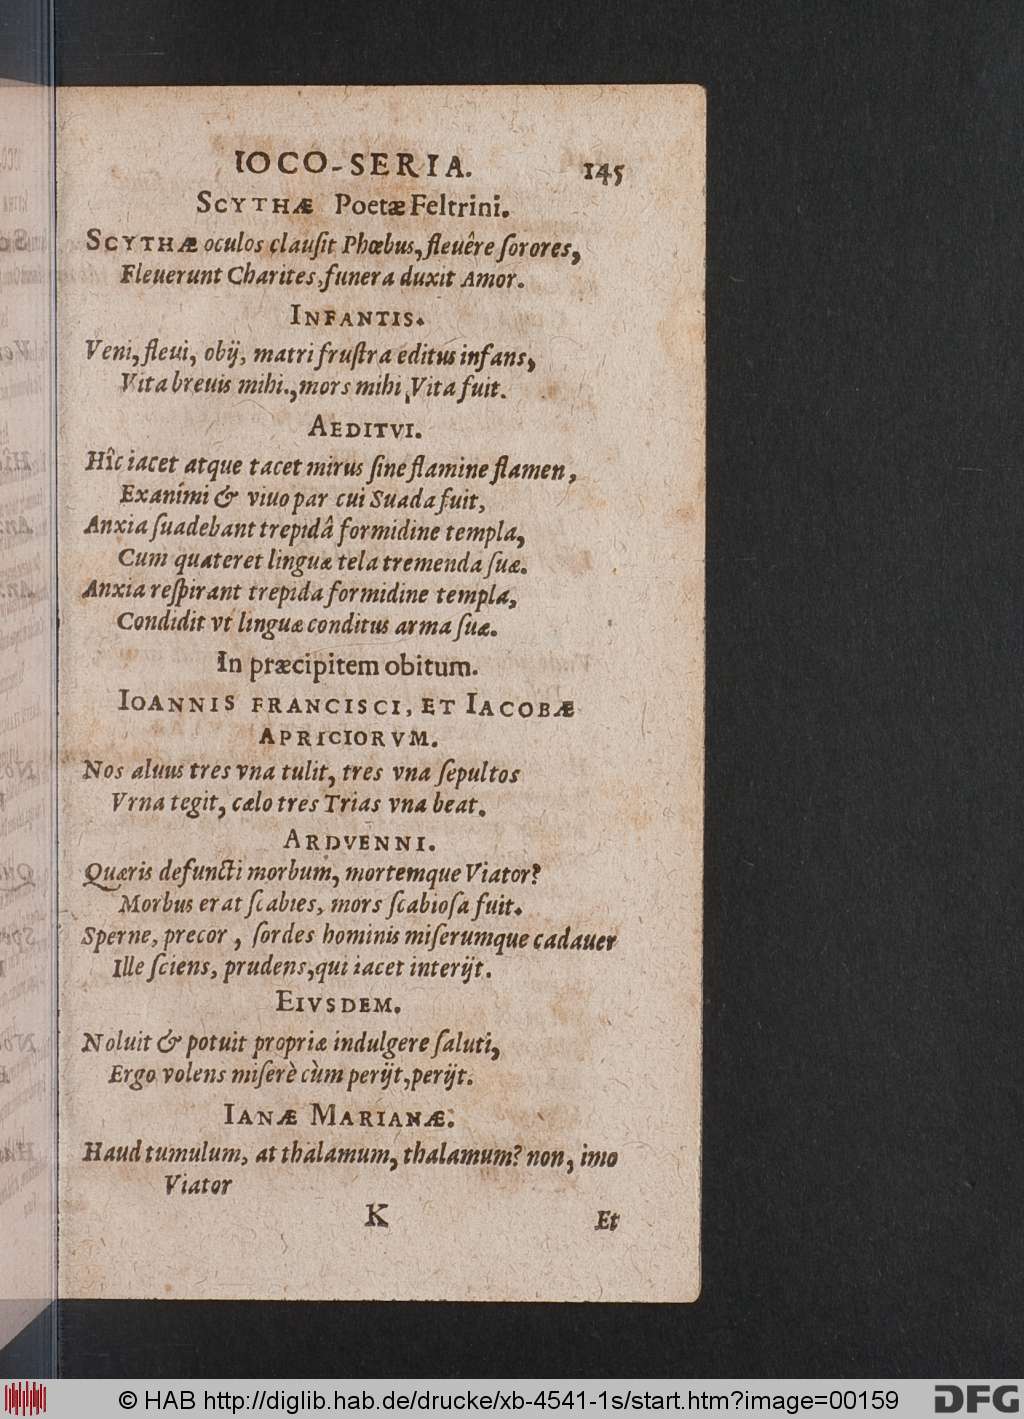 IOCO-SERIA. 145
SCYTHÆ Poetæ Feltrini.
SCYTHÆ oculos clauſit Phœbus, fleuêre ſorores,
Fleuerunt Charites, funera duxit Amor.
INFANTIS.
Veni, fleui, obij, matri fruſtra editus infans,
Vita breuis mihi., mors mihi Vita fuit.
AEDITVI.
Hîc iacet atque tacet mirus ſine flamine flamen,
Exanimi & viuo par cui Suada fuit,
Anxia ſuadebant trepidâ formidine templa,
Cum quateret linguæ tela tremenda ſuæ.
Anxia reſpirant trepida formidine templa,
Condidit vt linguæ conditus arma ſuæ.
In præcipitem obitum.
IOANNIS FRANCISCI, ET IACOBÆ
APRICIORVM.
Nos aluus tres vna tulit, tres vna ſepultos
Vrna tegit, cælo tres Trias vna beat.
ARDVENNI.
Quæris defuncti morbum, mortemque Viator?
Morbus erat ſcabies, mors ſcabioſa fuit.
Sperne, precor, ſordes hominis miſerumque cadauer
Ille ſciens, prudens, qui iacet interijt.
EIVSDEM.
Noluit & potuit propriæ indulgere ſaluti,
Ergo volens miſerè cùm perijt, perijt.
IANÆ MARIANÆ.
Haud tumulum, at thalamum, thalamum? non, imo
Viator
K Et
© HAB http://diglib.hab.de/drucke/xb-4541-1s/start.htm?image=00159 DFG